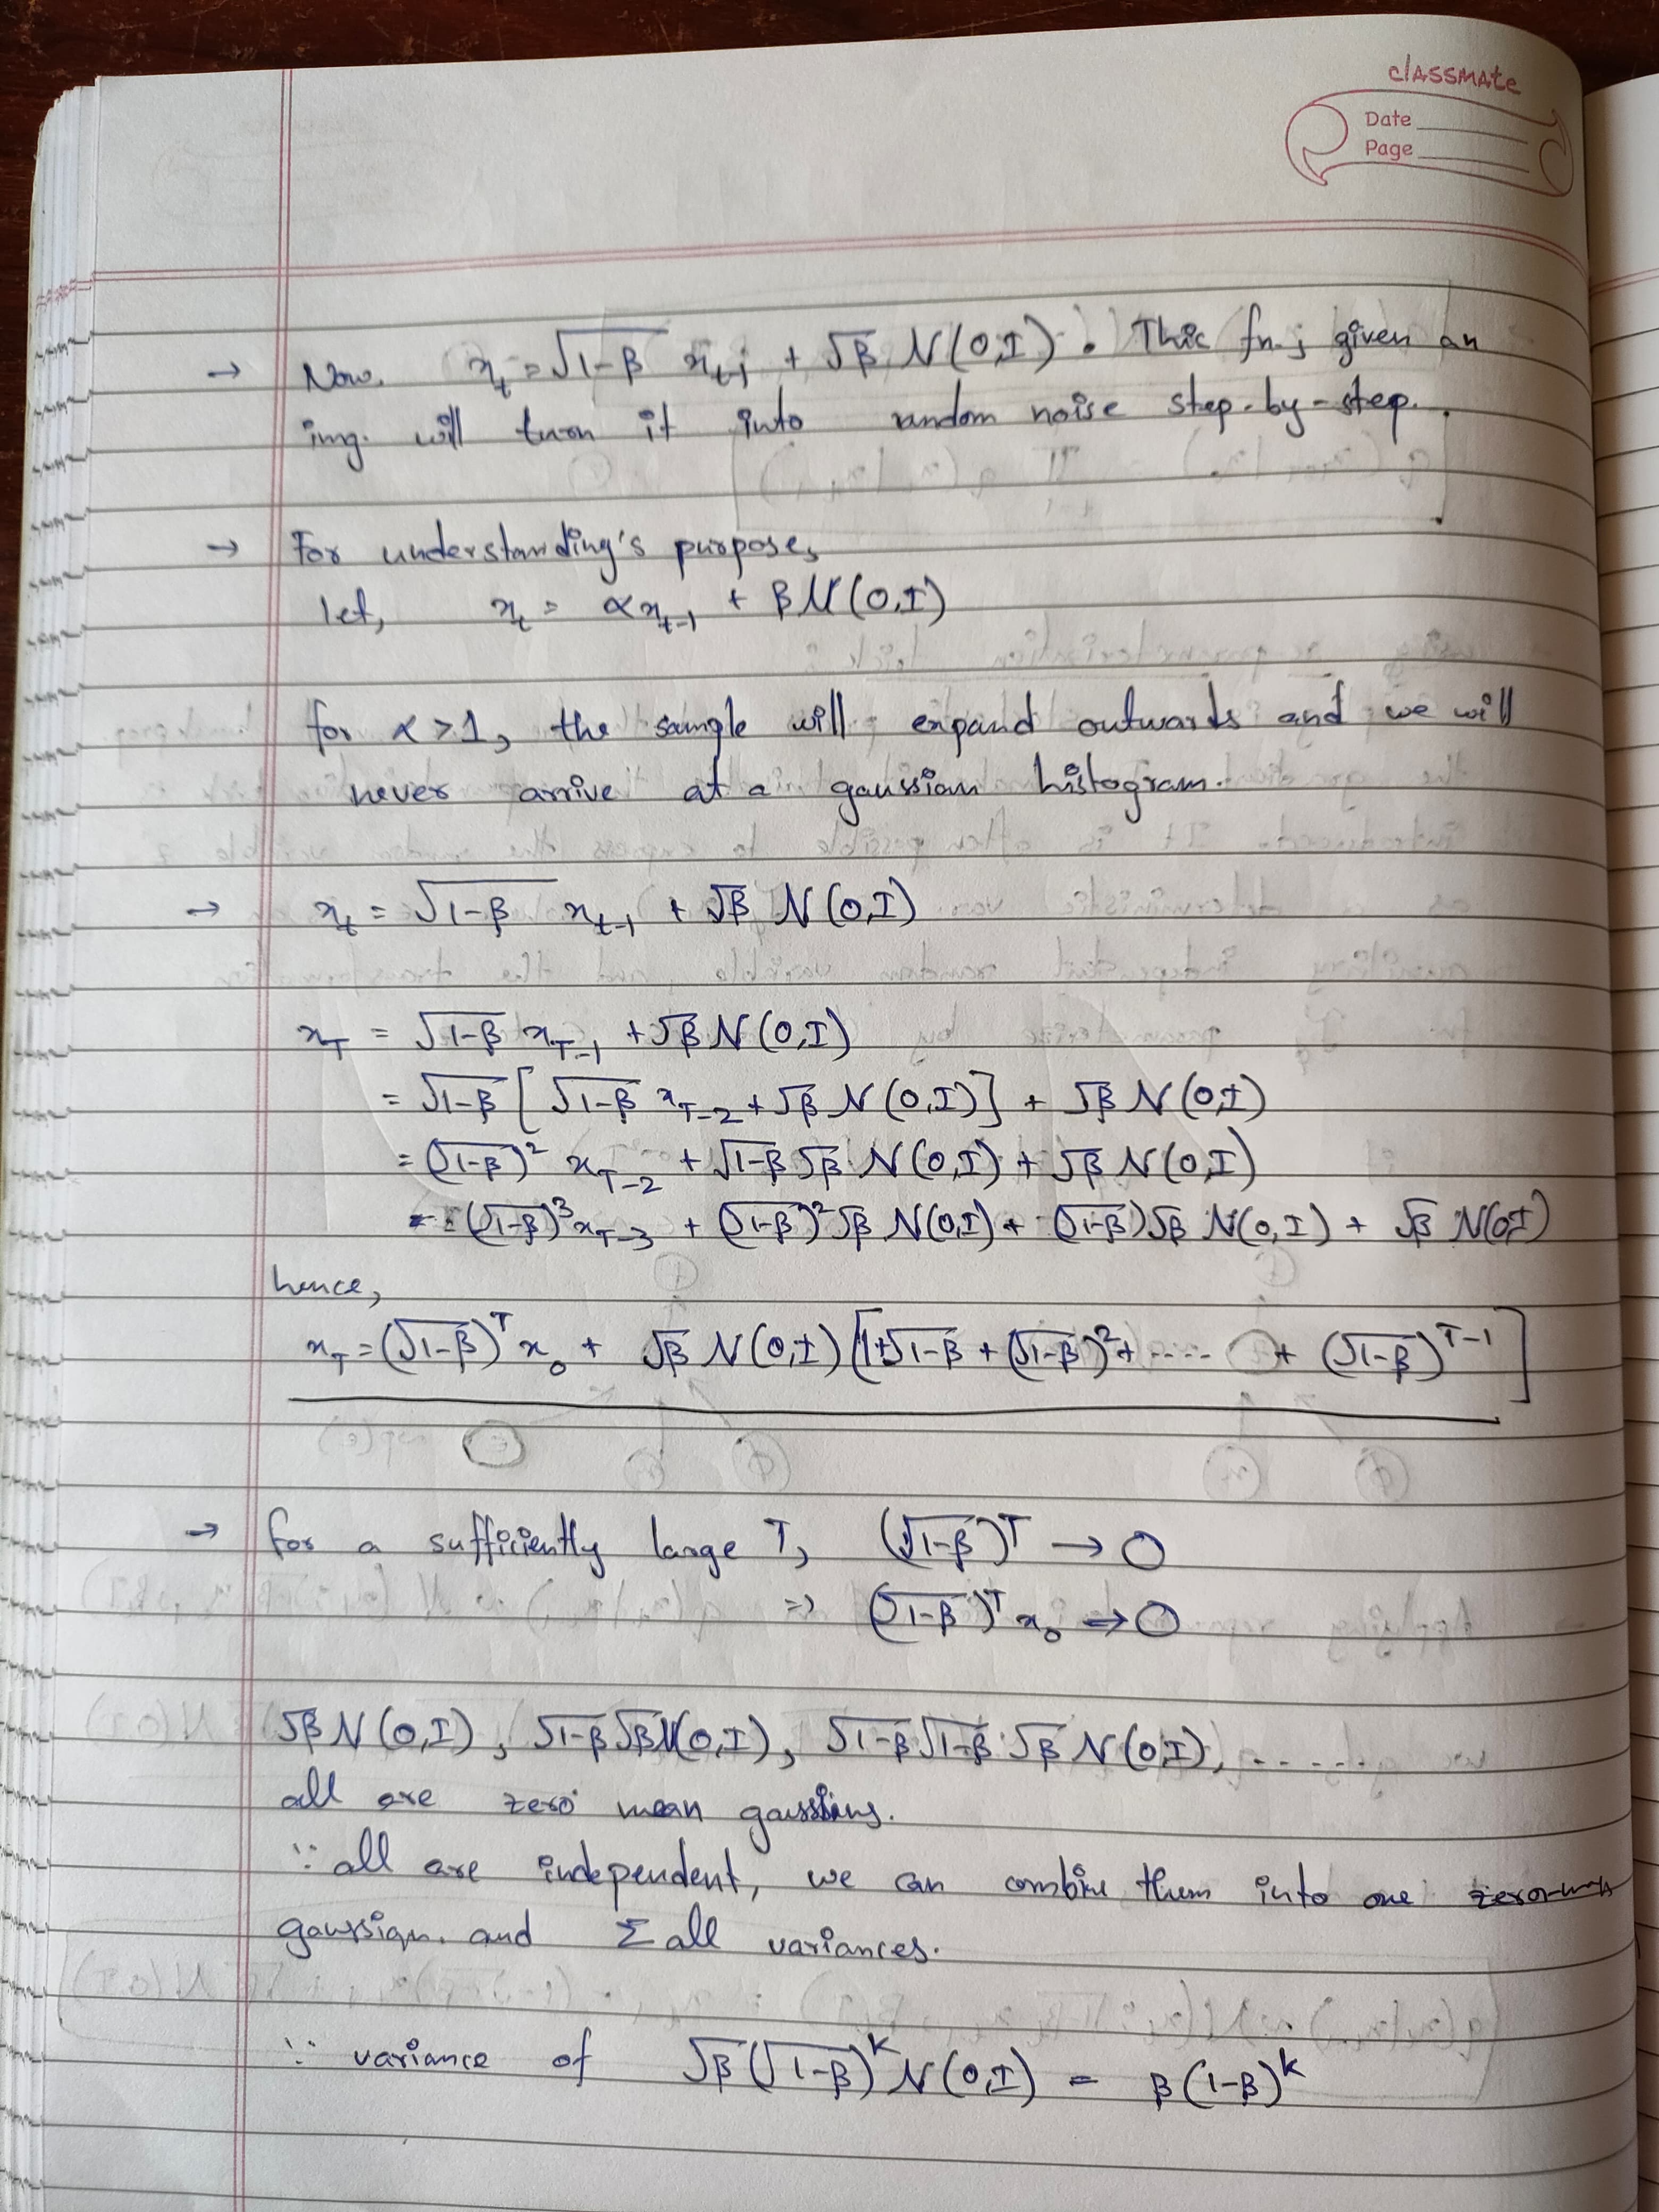 classmate
Date
Page
→ Now, x_t = √(1-β) x_{t-1} + √β N(0,I). This fn., given an
img. will turn it into random noise step-by-step.
→ For understanding's purpose,
let, x_t = αx_{t-1} + βN(0,I)
for α>1, the sample will expand outwards and we will
never arrive at a gaussian histogram.
→ x_t = √(1-β) x_{t-1} + √β N(0,I)
x_T = √(1-β) x_{T-1} + √β N(0,I)
= √(1-β) [√(1-β) x_{T-2} + √β N(0,I)] + √β N(0,I)
= (√(1-β))² x_{T-2} + √(1-β) √β N(0,I) + √β N(0,I)
= (√(1-β))³ x_{T-3} + (√(1-β))² √β N(0,I) + (√(1-β)) √β N(0,I) + √β N(0,I)
hence,
x_T = (√(1-β))^T x_0 + √β N(0,I) [1+√(1-β) + (√(1-β))² + .... + (√(1-β))^{T-1}]
→ for a sufficiently large T, (√(1-β))^T → 0
⇒ (√(1-β))^T x_0 → 0
√β N(0,I), √(1-β) √β N(0,I), √(1-β) √(1-β) √β N(0,I), ......
all are zero mean gaussians.
∵ all are independent, we can combine them into one
gaussian and Σ all variances.
∵ variance of √β (√(1-β))^k N(0,I) = β(1-β)^k